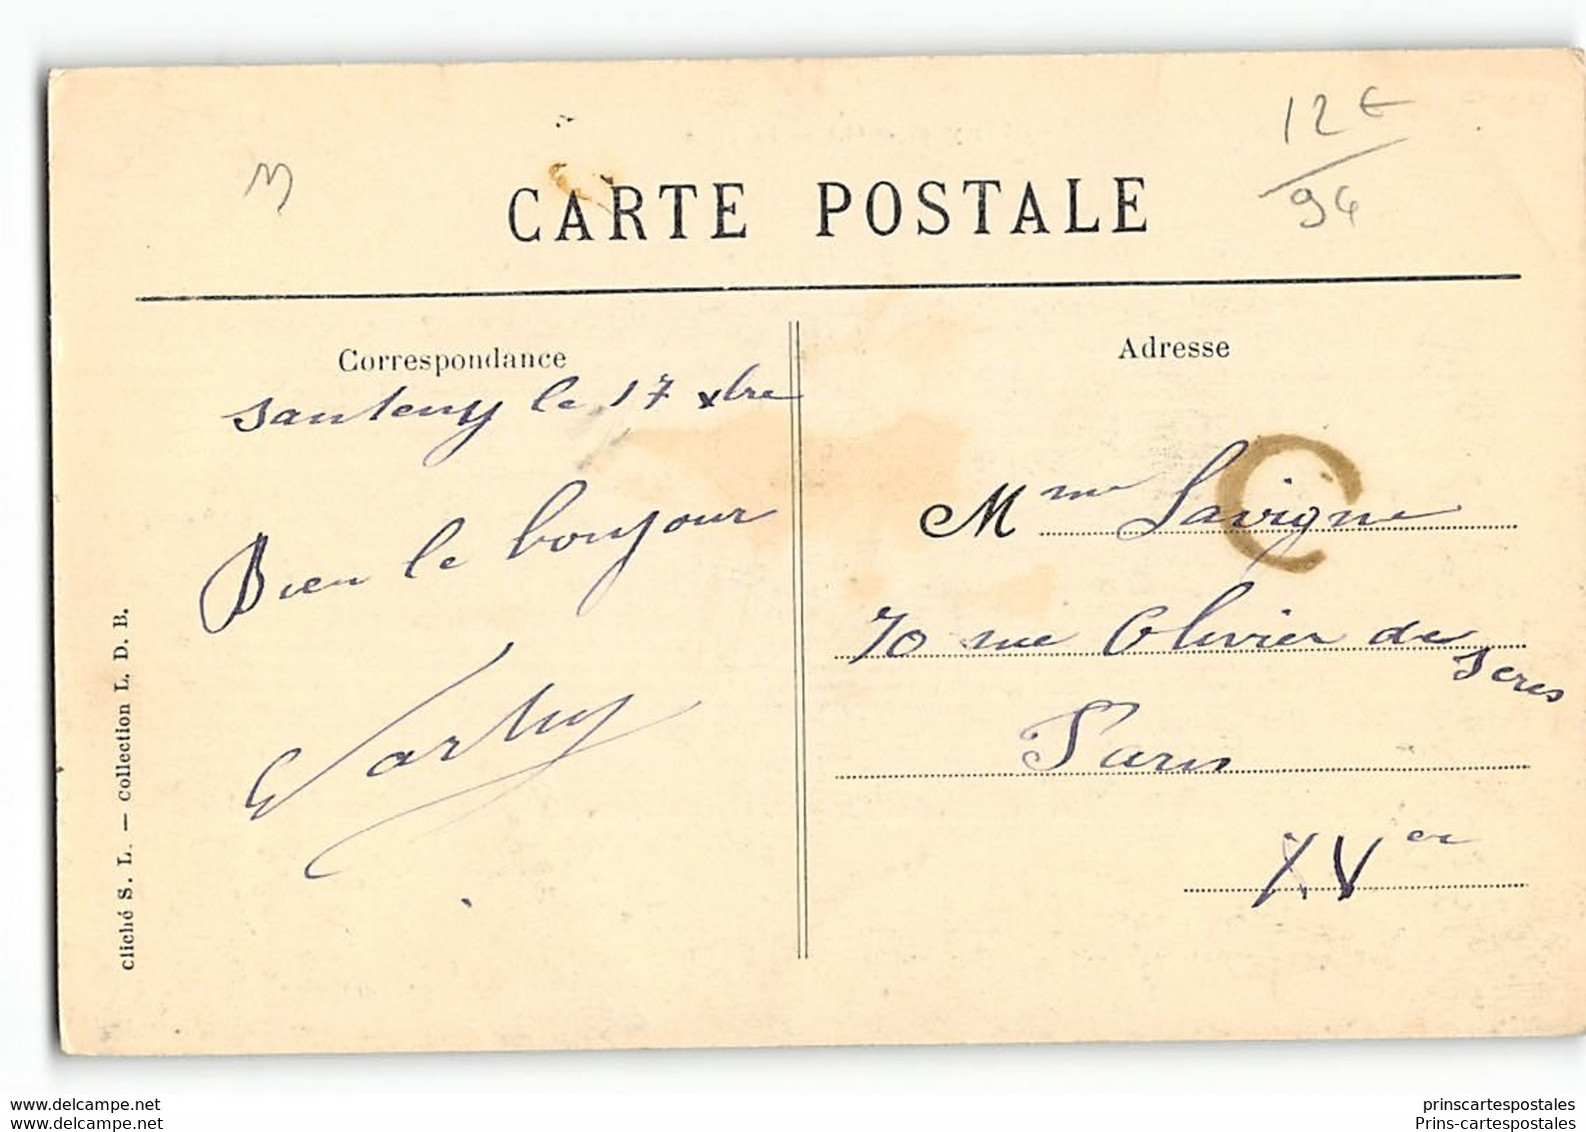 12 €
94
CARTE POSTALE
Correspondance
Santeny le 17 xbre
Bien le bonjour
Adresse
Mme Lavigne
70 rue Olivier de
Seres
Paris
XVer
C
cliché S. L. — Collection L. D. B.
www.delcampe.net
www.delcampe.net
prinscartespostales
Prins-cartespostales